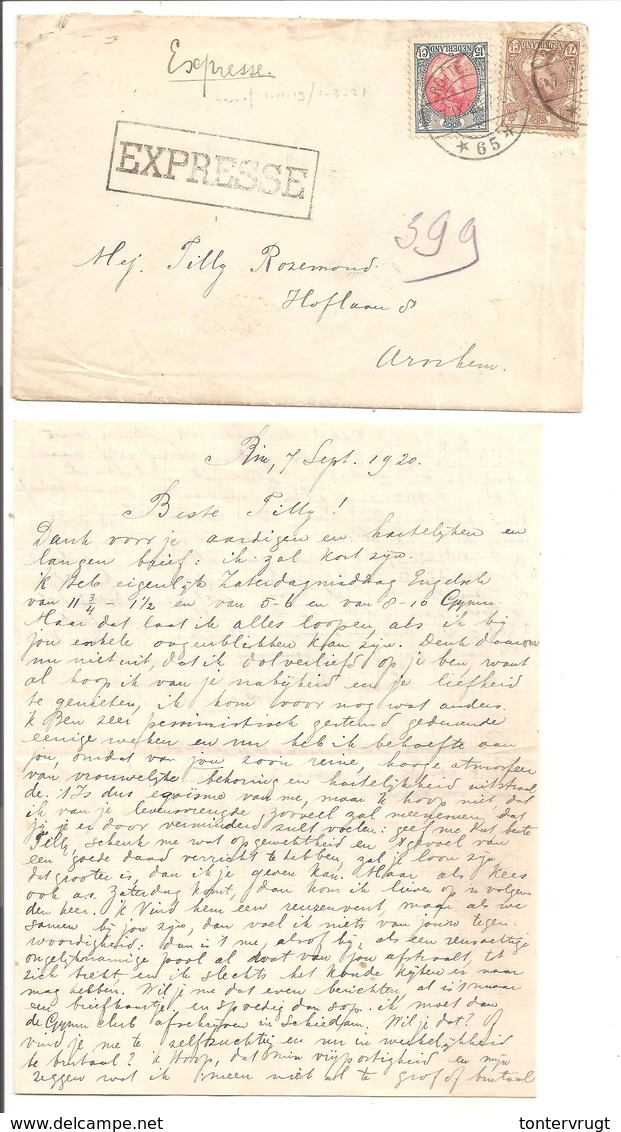 Expresse.
tarief 1-11-19/1-3-21
NEDERLAND
NEDERLAND
ROTTE
65
EXPRESSE
399
Mej. Tilly Rozemond
Hoflaan 8
Arnhem.
7 Sept. 1920.
Beste Tilly!
Dank voor je aardigen en hartelijken en
langen brief: ik zal kort zijn.
ik Heb eigenlijk Zaterdagmiddag Engelsch
van 11 3/4 – 1 1/2 en van 5-6 en van 8-10 Gymn.
Maar dat laat ik alles loopen, als ik bij
jou enkele oogenblikken kan zijn. Denk daarom
nu niet uit, dat ik dolverliefd op je ben, want
al hoop ik van je nabijheid en je liefheid
te genieten, ik kom voor nog wat anders.
ik Ben zeer pessimistisch gestemd gedurende
eenige weken en nu heb ik behoefte aan
jou, omdat van jou zoon reine, hooge atmosfeer
van vrouwelijke bekoring en hartelijkheid uitstraal
de. 't Is dus egoïsme van me, maar ik hoop niet, dat
ik van je levensvreugde zooveel zal meenemen, dat
jij je er door verminderd zult voelen: geef me dat beste
Tilly, schenk me wat opgewektheid en 't gevoel van
een goede daad verricht te hebben, zal je loon zijn
dat grooter is, dan ik je geven kan. Maar als Kees
ook as. Zaterdag komt, dan kom ik liever op 'n volgen
den keer. 'k Vind hem een reuzenvent, maar als we
samen bij jou zijn, dan voel ik niets van jouw tegen
woordigheid: dan is 't me, alsof hij, als een reusachtige
ongelijknamige pool al wat van jou afstraalt, tot
zich trekt en ik slechts het koude kijken er naar
mag hebben. Wil je me dat even berichten, al is 't maar
een briefkaartje en spoedig dan sop. ik moet dan
de Gymn club afschrijven in Schiedam. Wil je dat? Of
vind je me te zelfzuchtig en nu in werkelijkheid
te brutaal? 'k Hoop, dat mijn vrijpostigheid en mijn
zeggen wat ik meen niet al te grof of brutaal
tontervrugt - delcampe.net